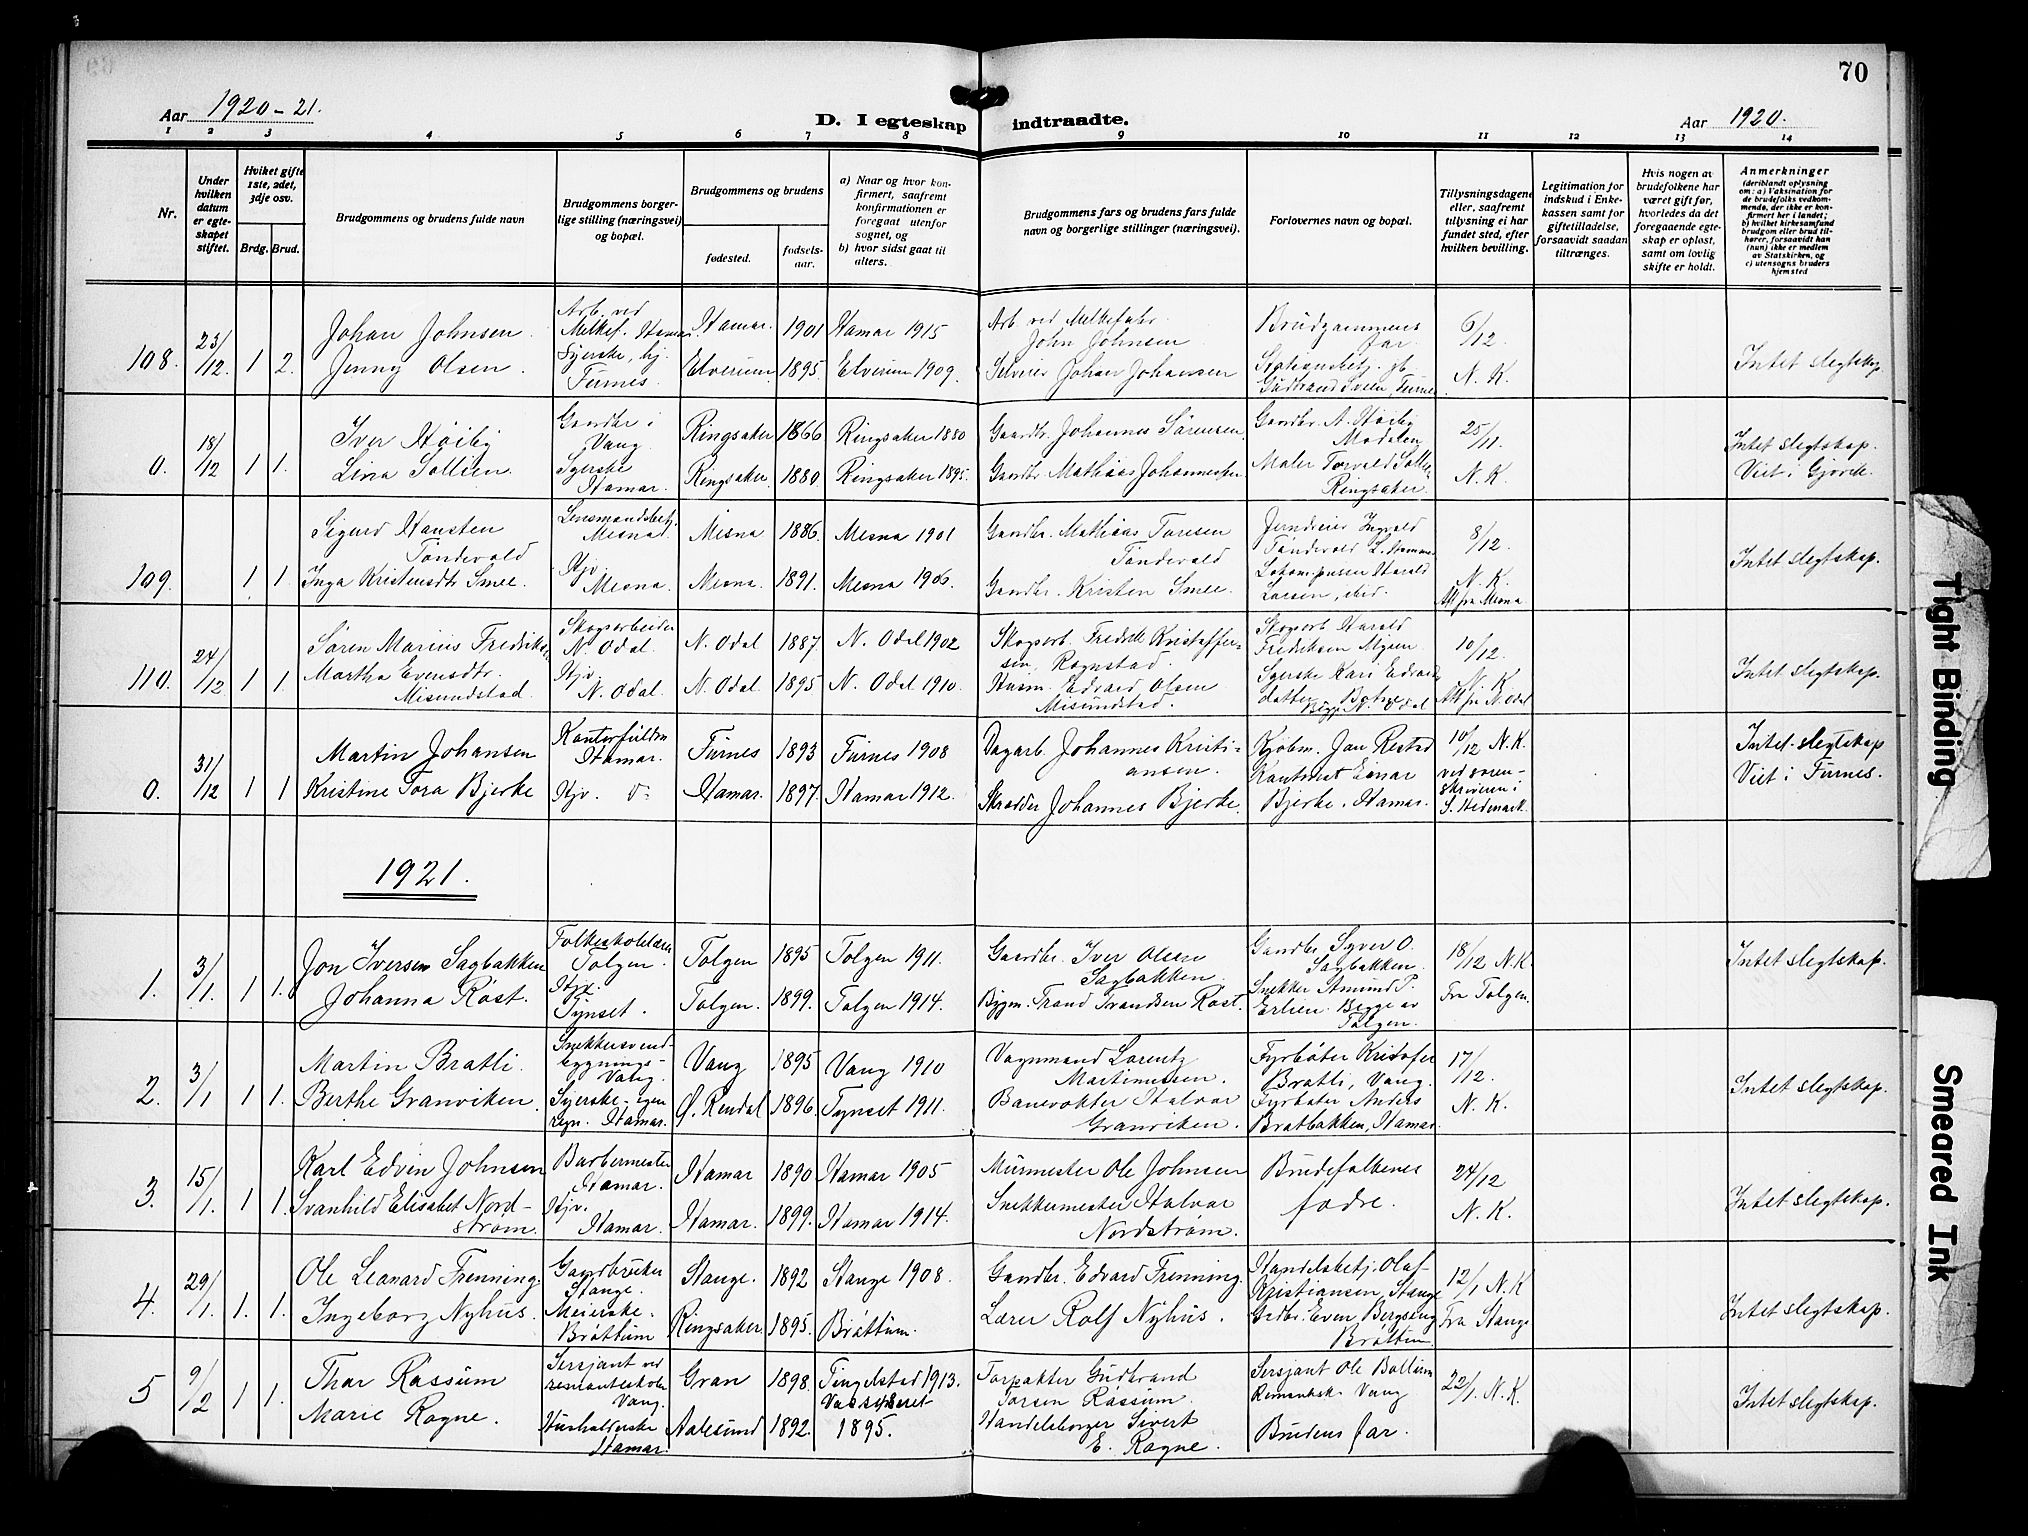 70
Aar 1920-21.
D. I egteskap indtraadte.
Aar 1920.
1 2 3 4 5 6 7 8 9 10 11 12 13 14
Nr.
Under hvilken datum er egteskapet stiftet.
Hviket gifte 1ste, 2det, 3dje osv.
Brdg. Brud.
Brudgommens og brudens fulde navn
Brudgommens borgerlige stilling (næringsvei) og bopæl.
Brudgommens og brudens
fødested.
fødselsaar.
a) Naar og hvor konfirmert, saafremt konfirmationen er foregaat utenfor sognet, og
b) hvor sidst gaat til alters.
Brudgommens fars og brudens fars fulde navn og borgerlige stillinger (næringsvei).
Forlovernes navn og bopæl.
Tillysningsdagene eller, saafremt tillysning ei har fundet sted, efter hvilken bevilling.
Legitimation for indskud i Enkekassen samt for giftetilladelse, forsaavidt saadan tiltrænges.
Hvis nogen av brudefolkene har været gift før, hvorledes da det foregaaende egteskap er opløst, samt om lovlig skifte er holdt.
Anmerkninger
(deriblandt oplysning om: a) Vaksination for de brudefolks vedkommende, der ikke er konfirmert her i landet; b) hvilket kirkesamfund brudgom eller brud tilhører, forsaavidt han (hun) ikke er medlem av Statskirken, og c) utensogns bruders hjemsted
108. 23/12 1 2.
Johan Johnsen
Jenny Olsen
Arb. ved Melkef. Hamar
Syerske, hj. Furnes.
Hamar. 1901 Hamar 1915
Elverum 1895. Elverum 1909.
Arb. ved Melkefabr. John Johnsen
Selveier Johan Johansen
Brudgammens far.
Gudbrand Sveen, Furnes
6/12. N. K.
Intet slegtskap
0. 18/12 1 1.
Iver Høiby
Lina Sollien
Gaardbr i Vang
Syerske Hamar.
Ringsaker 1866 Ringsaker 1880
Ringsaker. 1880. Ringsaker 1895.
Gaardbr. Johannes Sørensen
Gaardbr Mathias Johannessen
Gaardbr. A. Høiby
Maler Torvald Ringsaker
25/11. N. K.
Intet slegtskap.
Viet i Gjøvik.
109. 1 1.
Sigurd Hansten Tøndevold
Inga Kristensdtr Smee.
Lensmandsbetj. Mesna
Hjv. Mesna.
Mesna 1886. Mesna 1901
Mesna. 1891. Mesna 1906.
Gaardbr. Mathias Toresen Tøndevold
Gaardbr. Kristen Smee.
Ingvald Tøndevold L. Hamar
Harald Larsen,
8/12. N. K.
Att fra Mesna
Intet slegtskap.
110. 24/12 1 1.
Søren Marius Fredriks
Martha Evensdtr. Misundstad
Skogsarbeider N. Odal.
Hjv. N. Odal.
N. Odal 1887. N. Odal 1902
N. Odal 1895 N. Odal 1910.
Skogsarb. Fredrik Kristoffersen, Rognstad.
Husm. Edvard Olsen Misundstad.
Skogsarb Harald Fredriksen
Syerske Kari Edvardsdatter
Begge N. Odal
10/12. N. K
Att fra N. Odal
Intet slegtskap.
0. 31/12 1 1
Martin Johansen
Kristine Tora Bjerke
Kontorfuldm Hamar.
Hjv.
Furnes 1893 Furnes 1908
Hamar. 1897. Hamar 1912.
Dagarb. Johannes Kristiansen.
Skrædder Johannes Bjerke
Kjøbm. Jon Restad
Kontorist Einar Bjerke, Hamar.
10/12 N. K.
ved sorenskriveren i S. Hedemark.
Intet slegtskap
Viet i Furnes.
1921.
1. 3/1. 1 1.
Jon Iversen Sagbakken
Johanna Røst.
Folkeskolelærer Tolgen.
Hjv. Tynset.
Tolgen 1895 Tolgen 1911.
Tolgen. 1899. Tolgen 1914.
Gaardbr. Iver Olsen Sagbakken.
Bygm. Trond Trondsen Røst.
Gaardbr Syver O. Sagbakken.
Snekker Amund P. Erlien. Begge av Tolgen.
18/12 N. K
Fra Tolgen.
Intet slegtskap.
2. 3/1 1 1.
Martin Bratli.
Berthe Granviken
Vang.
Syerske - egen regn. Hamar.
Vang 1895 Vang 1910
Ø. Rendal 1896. Tynset 1911.
Vognmand Lorentz Martinussen.
Banevokter Halvar Granviken.
Fyrbøter Kristofer Bratli, Vang.
Fyrbøter Anders Bratbakken, Hamar.
17/12. N. K.
Intet slegtskap.
3. 15/1. 1 1.
Karl Edvin Johnsen
Svanhild Elisabet Nordstrøm.
Barbermester Hamar.
Hjv. Hamar.
Hamar 1890 Hamar 1905
Hamar. 1899. Hamar 1914.
Murmester Ole Johnsen
Snekkermester Halvar Nordstrøm.
Brudefolkenes fødre.
24/12 N. K.
Intet slegtskap.
4. 29/1. 1. 1.
Ole Leonard Frenning.
Ingeborg Nyhus.
Gaardbruker Stange.
Meierske. Brøttum
Stange. 1892 Stange 1908.
Ringsaker 1895. Brøttum.
Gaardbr. Edvard Frenning.
Lærer Rolf Nyhus.
Handelsbetj. Olaf Kristiansen, Stange
Grdbr. Even Bergseng Brøttum
12/1 N. K
Fra Stange
Intet slegtskap.
5 9/2 1 1.
Thor Røssum
Marie Rogne.
Sersjant ved Vang.
Husholderske Hamar.
Gran 1898. Tingelstad 1913.
Aalesund 1892. 1895.
Forpakter Gudbrand Torsen Røssum.
Handelsborger Sivert E. Rogne.
Sersjant Ole Vang
Brudens far.
22/1. N. K.
Intet slegtskap.
Tight Binding
Smeared Ink